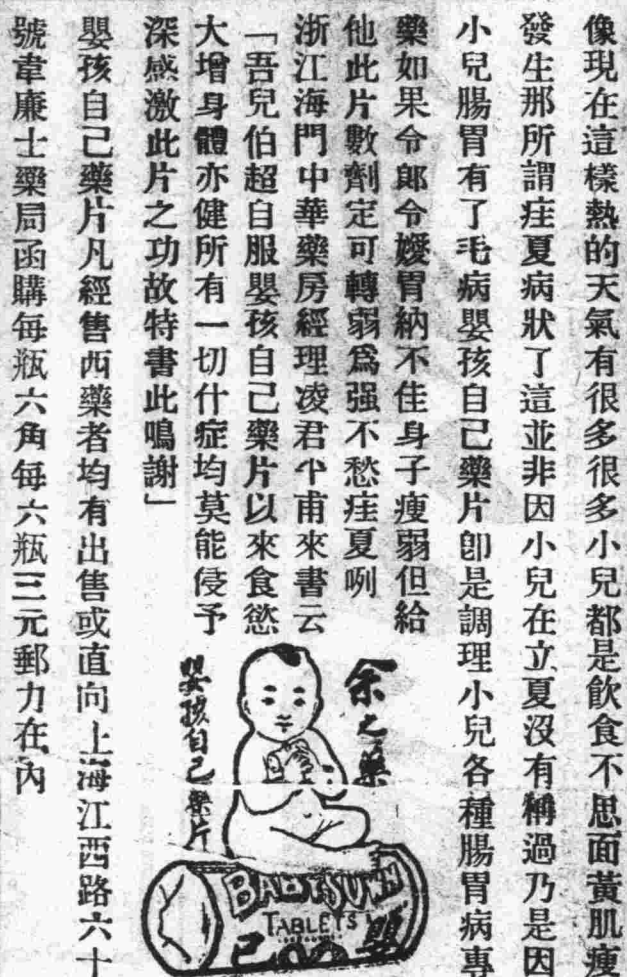 像現在這樣熱的天氣有很多很多小兒都是飲食不思面黃肌瘦
發生那所謂疰夏病狀了這並非因小兒在立夏沒有稱過乃是因
小兒腸胃有了毛病嬰孩自己藥片卽是調理小兒各種腸胃病專
藥如果令郞令嬡胃納不佳身子瘦弱但給
他此片數劑定可轉弱爲强不愁疰夏咧
浙江海門中華藥房經理凌君甫來書云
「吾兒伯超自服嬰孩自己藥片以來食慾
大增身體亦健所有一切什症均莫能侵予
深感激此片之功故特書此鳴謝」
嬰孩自己藥片凡經售西藥者均有出售或直向上海江西路六十
號韋廉士藥局函購每瓶六角每六瓶三元郵力在內
余之藥
嬰孩自己藥片
BABY'S OWN
TABLETS
嬰
己